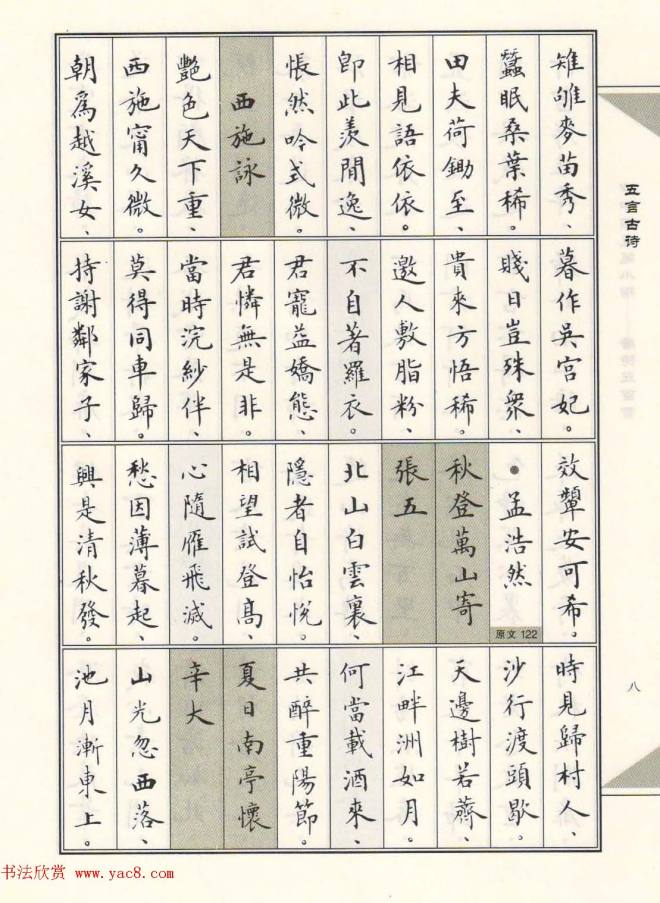 雉雊麥苗秀、
蠶眠桑葉稀。
田夫荷鋤至、
相見語依依。
卽此羨閒逸、
悵然吟式微。
西施詠
艷色天下重、
西施甯久微。
朝爲越溪女、
暮作吳宮妃。
賤日豈殊衆、
貴來方悟稀。
邀人敷脂粉、
不自著羅衣。
君寵益嬌態、
君憐無是非。
當時浣紗伴、
莫得同車歸。
持謝鄰家子、
效顰安可希。
•孟浩然
原文 122
秋登萬山寄
張五
北山白雲裏、
隱者自怡悅。
相望試登高、
心隨雁飛滅。
愁因薄暮起、
興是清秋發。
時見歸村人、
沙行渡頭歇。
天邊樹若薺、
江畔洲如月。
何當載酒來、
共醉重陽節。
夏日南亭懷
辛大
山光忽西落、
池月漸東上。
五言古诗
八
书法欣赏 www.yac8.com